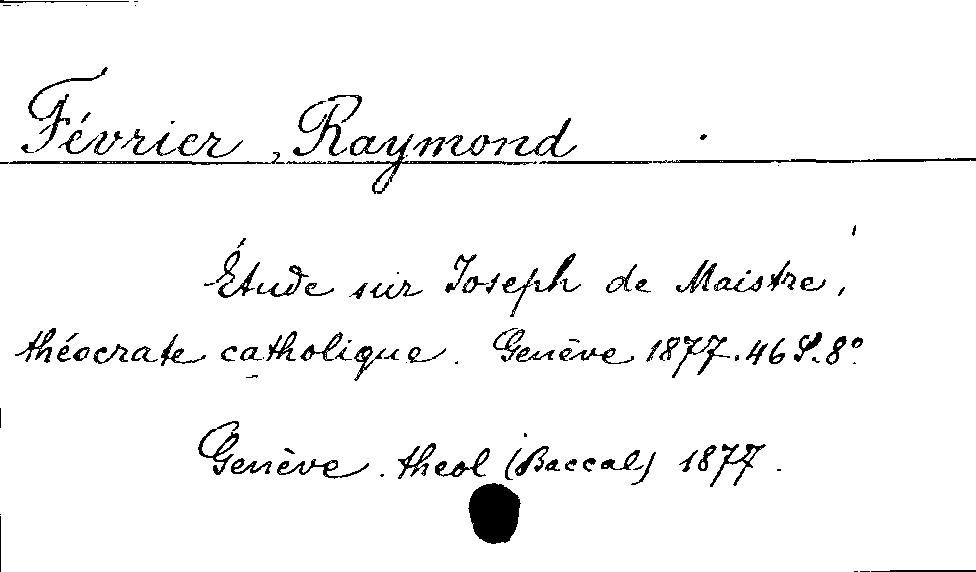 Février, Raymond
Étude sur Joseph de Maistre,
théocrate catholique. Genève 1877. 46 S. 8°.
Genève. theol (Baccal) 1877.